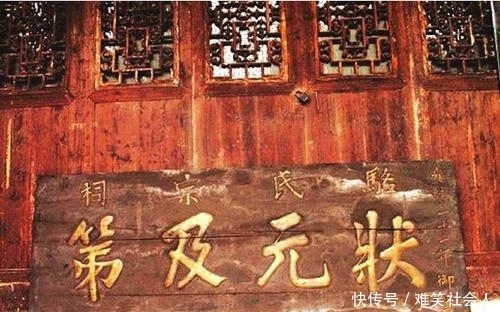 十一年御
駱民宗祠
狀元及第
快传号 / 难笑社会人